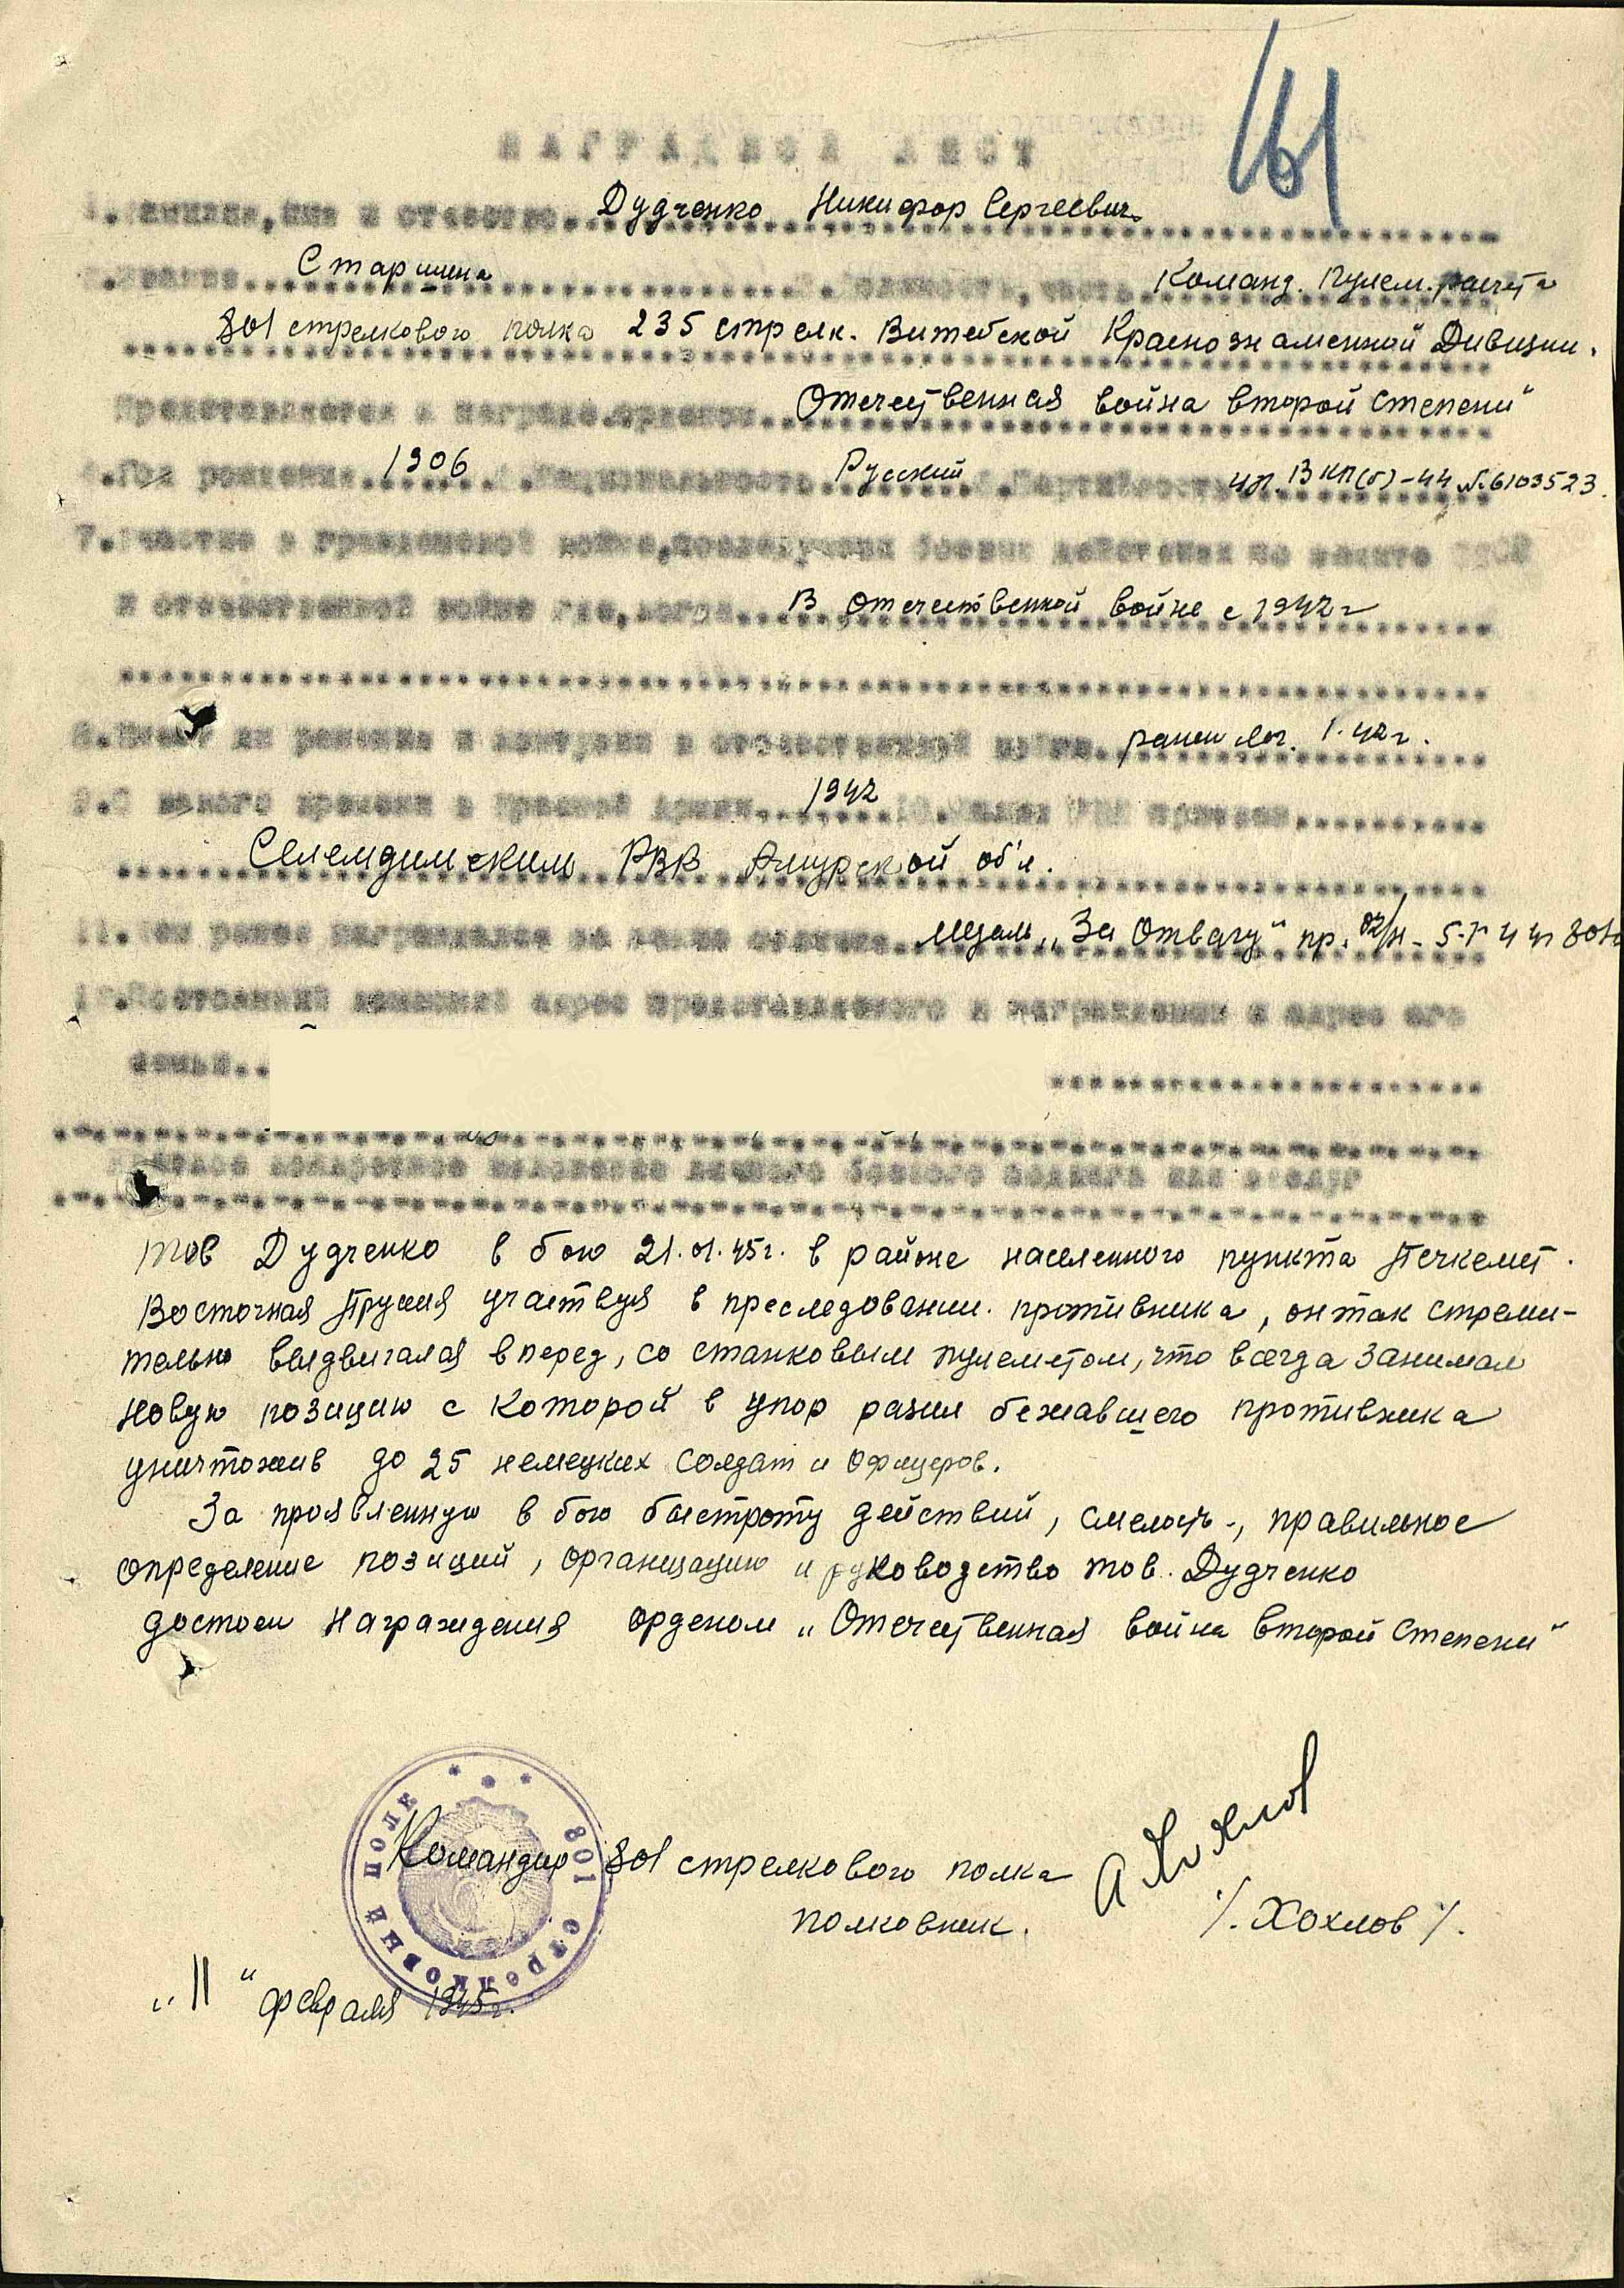 НАГРАДНОЙ ЛИСТ
1. Фамилия, имя и отчество. Дудченко Никифор Сергеевич
2. Звание. Старшина 3. Должность, часть. Команд. пулем. расчета
801 стрелкового полка 235 стрелк. Витебской Краснознаменной Дивизии.
Представляется к награде орденом. Отечественная война второй степени"
4. Год рождения. 1906 5. Национальность Русский 6. Партийность чл. ВКП(б)-44 № 6103523.
7. Участие в гражданской войне, последующих боевых действиях по защите СССР
и отечественной войне где, когда. В отечественной войне с 1942 г
8. Имеет ли ранения и контузии в отечественной войне. ранен лег. 1.42 г.
9. С какого времени в Красной Армии. 1942 10. Каким РВК призван.
Селемджимским РВК Амурской об'л.
11. Чем ранее награждался за какие отличия. медаль „За Отвагу" пр.
12. Постоянный домашний адрес представляемого к награждению и адрес его
семьи..
Краткое конкретное изложение личного боевого подвига или заслуг
тов Дудченко в бою 21.01.45г. в районе населенного пункта Печкемет.
Восточная Пруссия участвуя в преследовании. противника, он так стреми-
тельно выдвигался вперед, со станковым пулеметом, что всегда занимал
новую позицию с которой в упор разил бежавшего противника
уничтожив до 25 немецких солдат и офицеров.
За проявленную в бою быстроту действий, смелость, правильное
определение позиций, организацию и руководство тов. Дудченко
достоен награждения орденом „Отечественная война второй степени"
Командир 801 стрелкового полка
полковник. /. Хохлов /.
А Хохлов
801 стрелковый полк
„11" февраля 1945г.
101